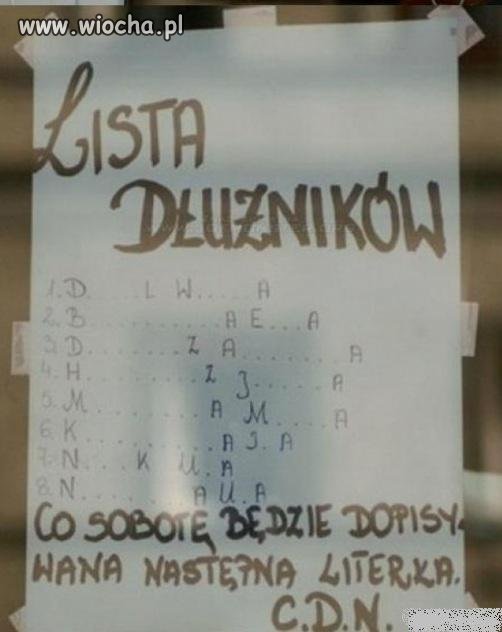 www.wiocha.pl
LISTA
DŁUŻNIKÓW
1. D.....L W.....A
2. B...........A E...A
3. D........Z A.......A
4. H.........Z J.....A
5. M.........A M....A
6. K..........A J.A
7. N...K U.A
8. N........A U.A
CO SOBOTĘ BĘDZIE DOPISY-
WANA NASTĘPNA LITERKA.
C.D.N.